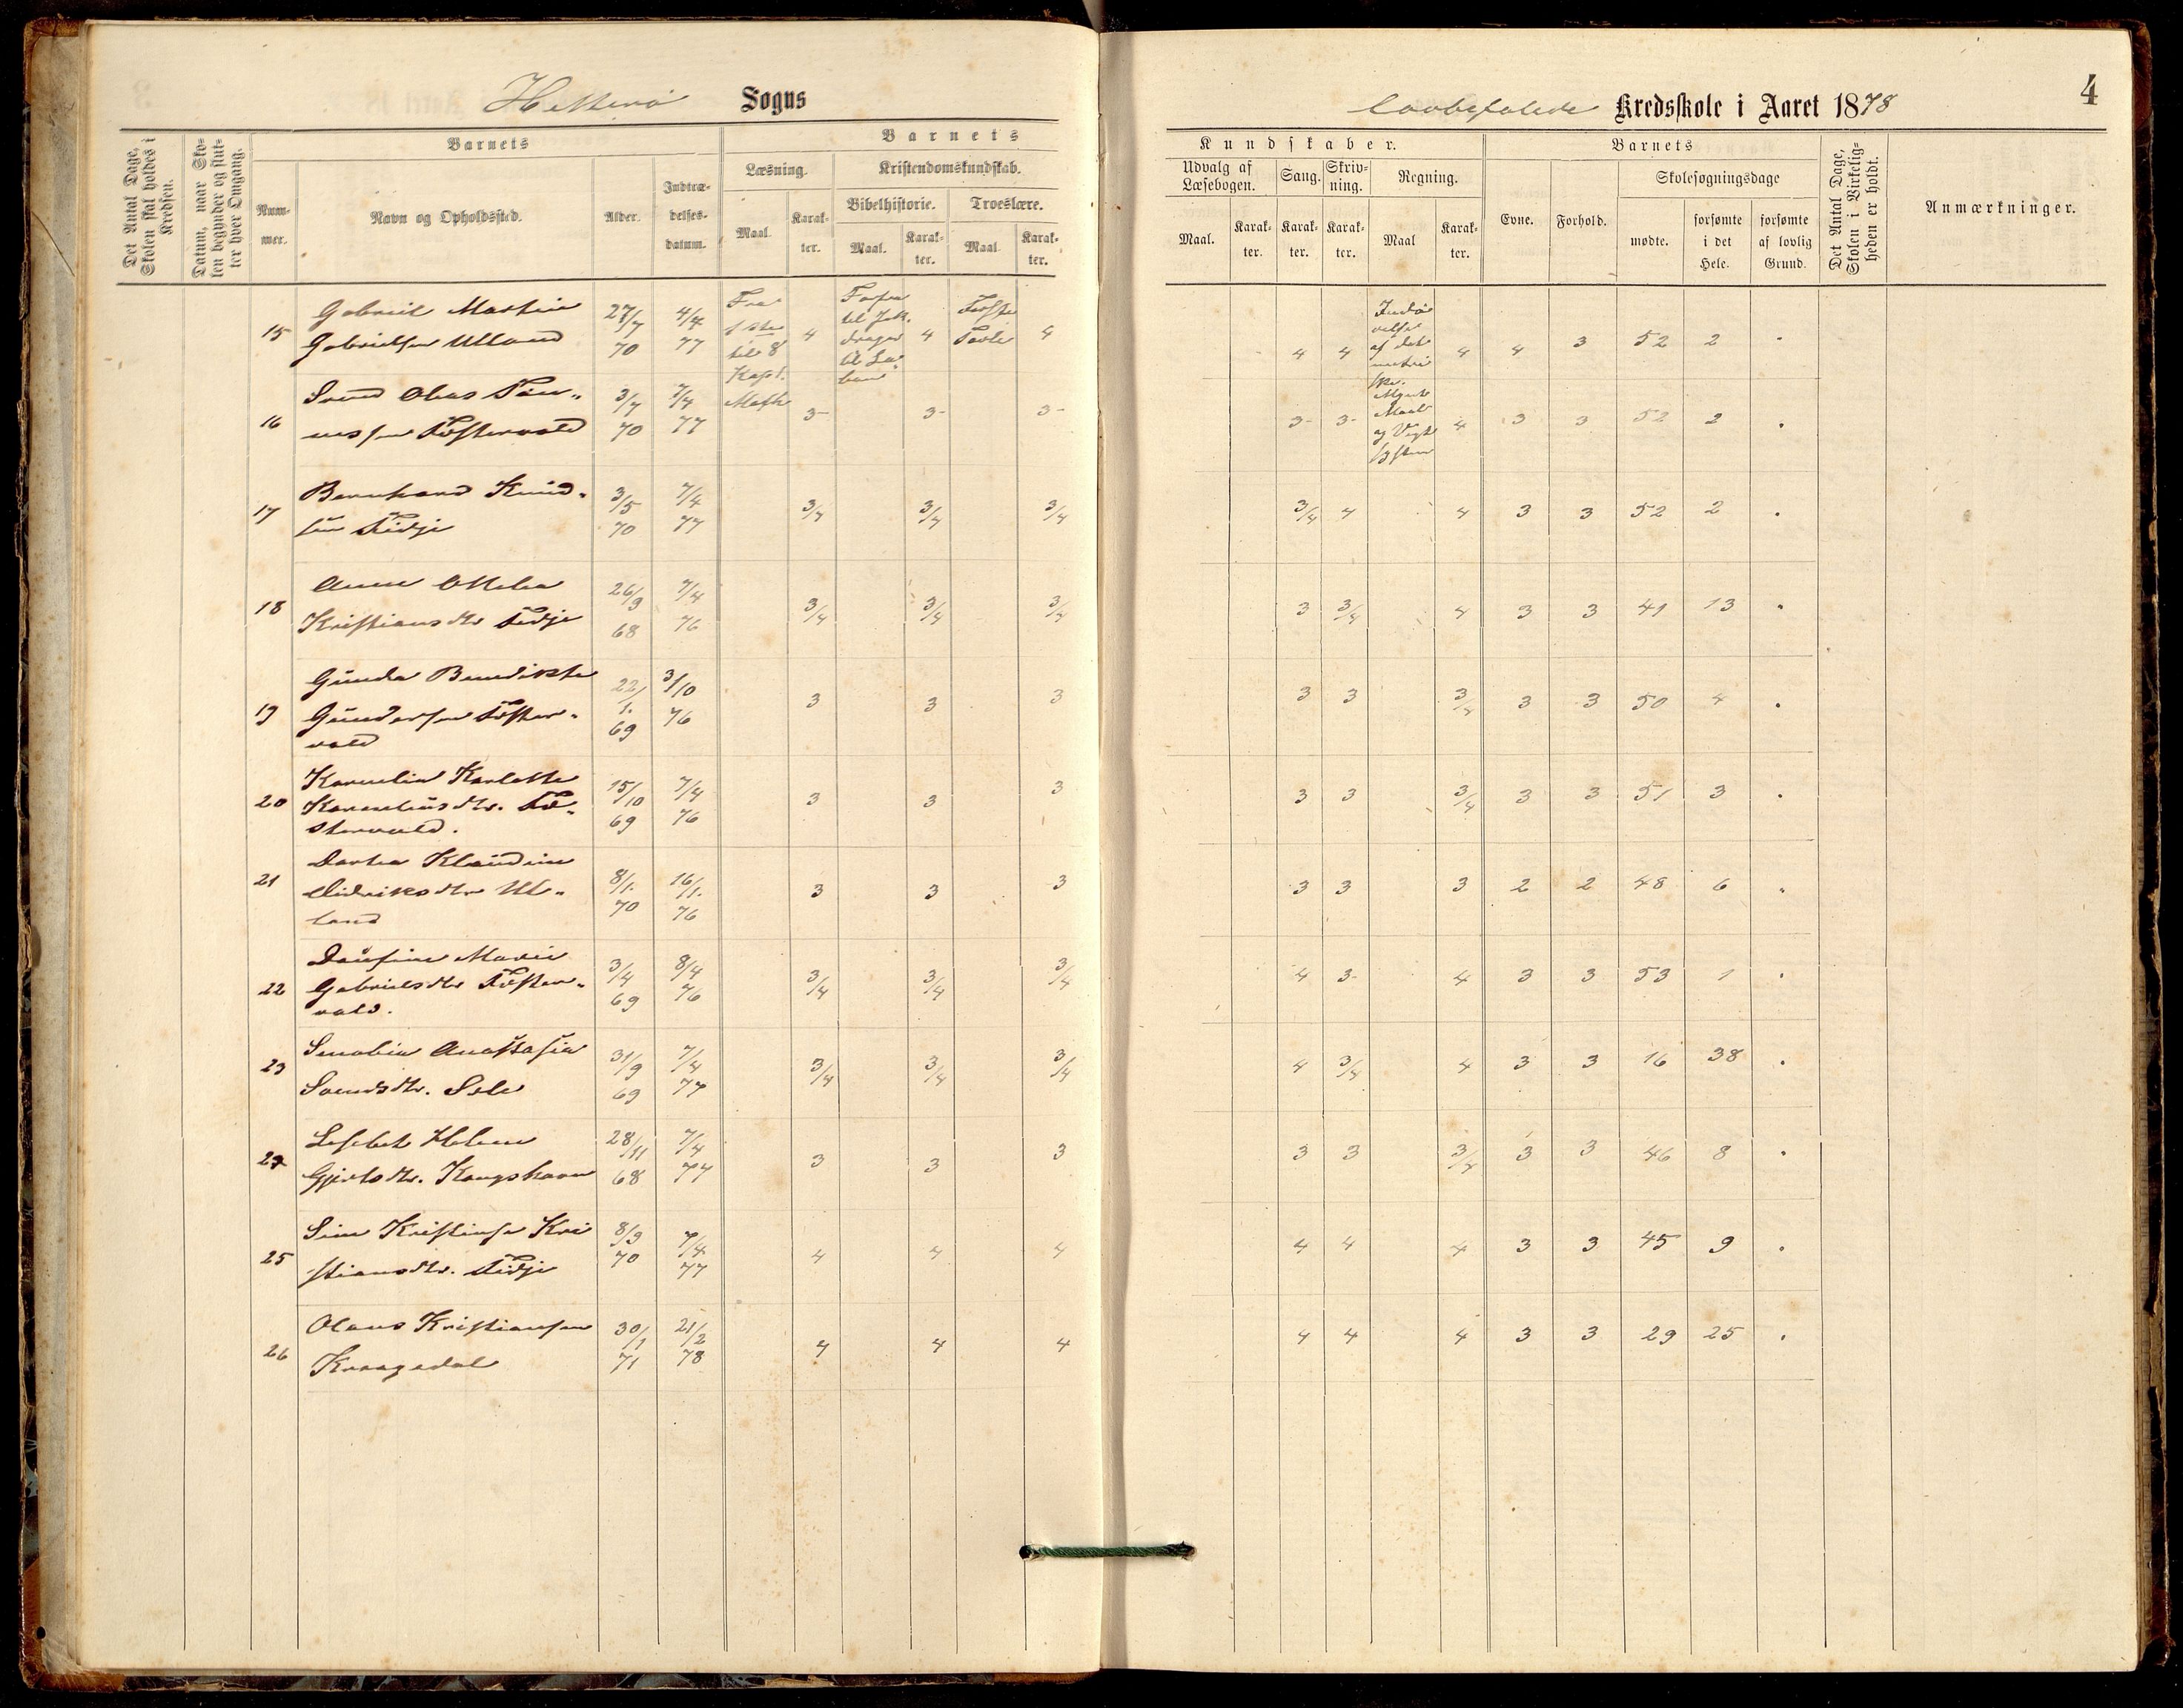 Hitterø Sogns
lovbefalede Kredsskole i Aaret 1878
4
Det Antal Dage, Skolen skal holdes i Kredsen.
Datum, naar Skolen begynder og slutter hver Omgang.
Barnets
Nummer.
Navn og Opholdssted.
Alder.
Indtrædelses-datum.
Barnets
Læsning.
Kristendomskundskab.
Maal.
Karakter.
Bibelhistorie.
Troeslære.
Maal.
Karakter.
Maal
Karakter.
Kundskaber.
Udvalg af Læsebogen.
Sang.
Skrivning.
Regning.
Maal.
Karakter.
Karakter.
Karakter.
Maal
Karakter.
Barnets
Evne.
Forhold.
Skolesøgningsdage
mødte.
forsømte i det Hele.
forsømte af lovlig Grund.
Det Antal Dage, Skolen i Virkeligheden er holdt.
Anmærkninger.
15 Gabriel Martin Gabrielsen Ulland 27/7 70 4/4 77 Fra 1ste til 8 Kapt. 4 Forfra til Jak. drager til Laban 4 Første Parti 4 4 4 4 4 3 52 2 "
16 Svend Olaus Tønnessen Fostervold 3/7 70 7/4 77 3- 3- 3- 3- 3- Maal og Vægt 4 3 3 52 2 "
17 Bernhard Knudsen Fidje 3/5 70 7/4 77 3/4 3/4 3/4 3/4 4 4 3 3 52 2 "
18 Anne Otilia Kristiansdtr Fidje 26/9 68 7/4 76 3/4 3/4 3/4 3 3/4 4 3 3 41 13 "
19 Gunda Bendikte Gundersen Fostervold 22/1. 69 3/10 76 3 3 3 3 3 3/4 3 3 50 4 "
20 Kornelia Karlotte Korneliusdtr. Fostervold. 15/10 69 7/4 76 3 3 3 3 3 3/4 3 3 51 3 "
21 Dorthea Klaudine Didriksdtr Ulland 8/1. 70 16/1. 76 3 3 3 3 3 3 2 2 48 6 "
22 Marie Gabrielsdtr Fostervold. 3/4 69 8/4 76 3/4 3/4 3/4 4 3- 4 3 3 53 1 "
23 Senobia Anastasia Svendsdtr. Sele 31/9 69 7/4 77 3/4 3/4 3/4 4 3/4 4 3 3 16 38 "
24 Lisebet Helene Gjertsdtr. Kongshavn 28/11 68 7/4 77 3 3 3 3 3 3/4 3 3 46 8 "
25 Sine Kristense Kristiansdtr. Fidje 8/9 70 7/4 77 4 4 4 4 4 4 3 3 45 9 "
26 Olaus Kristiansen Kraagedal 30/1 71 21/2 78 4 4 4 4 4 4 3 3 29 25 "